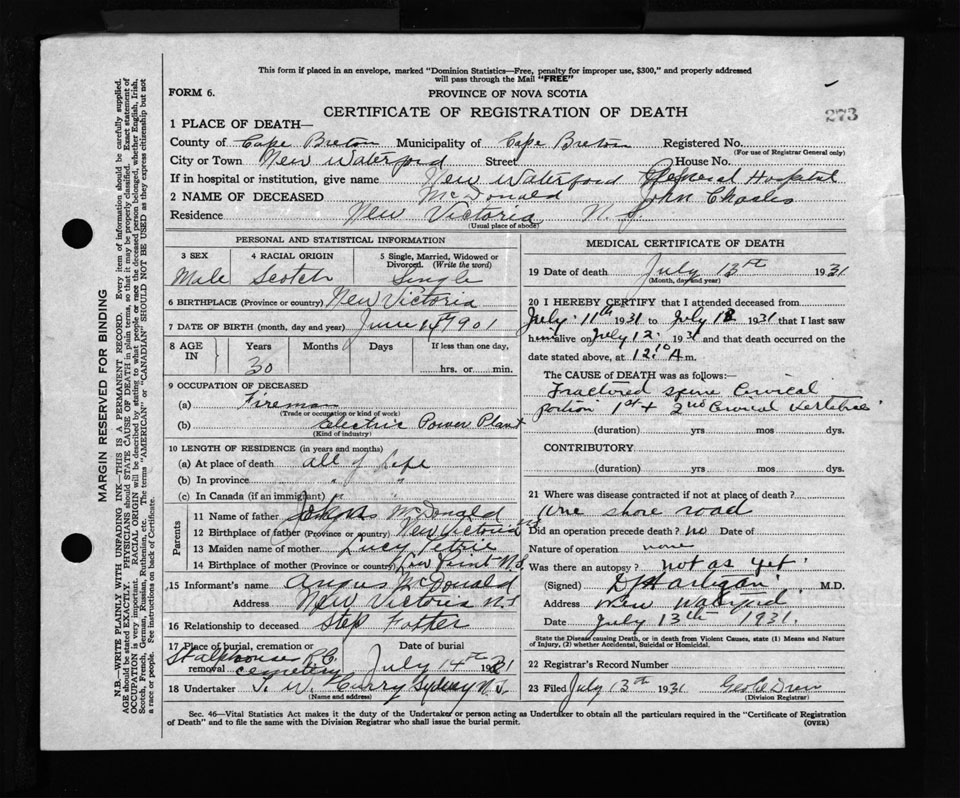 This form if placed in an envelope, marked "Dominion Statistics—Free, penalty for improper use, $300," and properly addressed
will pass through the Mail "FREE"
FORM 6.
PROVINCE OF NOVA SCOTIA
273
CERTIFICATE OF REGISTRATION OF DEATH
1 PLACE OF DEATH—
County of Cape Breton Municipality of Cape Breton Registered No.
(For use of Registrar General only)
City or Town New Waterford Street House No.
If in hospital or institution, give name New Waterford General Hospital
2 NAME OF DECEASED McDonald John Charles
Residence New Victoria N.S.
(Usual place of abode)
PERSONAL AND STATISTICAL INFORMATION
3 SEX 4 RACIAL ORIGIN 5 Single, Married, Widowed or
Divorced. (Write the word)
Male Scotch Single
6 BIRTHPLACE (Province or country) New Victoria
7 DATE OF BIRTH (month, day and year) June 14th 1901
8 AGE IN Years Months Days If less than one day,
30 hrs. or min.
9 OCCUPATION OF DECEASED
(a) Fireman
(Trade or occupation or kind of work)
(b) Electric Power Plant
(Kind of industry)
10 LENGTH OF RESIDENCE (in years and months)
(a) At place of death all of Life
(b) In province " "
(c) In Canada (if an immigrant) " "
Parents
11 Name of father McDonald
12 Birthplace of father (Province or country) New Victoria NS
13 Maiden name of mother Lucy Petrie
14 Birthplace of mother (Province or country) Low Point N.S.
15 Informant's name Angus McDonald
Address New Victoria N.S
16 Relationship to deceased Step Father
17 Place of burial, cremation or removal Date of burial
R.C. cemetery July 14th 1931
18 Undertaker T. W. Curry Sydney N.S.
(Name and address)
MEDICAL CERTIFICATE OF DEATH
19 Date of death July 13th 1931
(Month, day and year)
20 I HEREBY CERTIFY that I attended deceased from
July 11th 1931 to July 12 1931 that I last saw
him alive on July 12 1931 and that death occurred on the
date stated above, at 12.10 A m.
The CAUSE of DEATH was as follows:—
Fractured spine Cervical
portion 1st + 2nd Cervical Vertebrae
(duration) yrs mos dys.
CONTRIBUTORY
(duration) yrs mos dys.
21 Where was disease contracted if not at place of death?
shore road
Did an operation precede death? no Date of
Nature of operation none
Was there an autopsy? not as yet
(Signed) D Hartigan M.D.
Address New Waterford
Date July 13th 1931.
State the Disease causing Death, or in death from Violent Causes, state (1) Means and Nature
of Injury, (2) whether Accidental, Suicidal or Homicidal.
22 Registrar's Record Number
23 Filed July 13th 1931
(Division Registrar)
Sec. 46—Vital Statistics Act makes it the duty of the Undertaker or person acting as Undertaker to obtain all the particulars required in the "Certificate of Registration
of Death" and to file the same with the Division Registrar who shall issue the burial permit.
(OVER)
MARGIN RESERVED FOR BINDING
N.B.—WRITE PLAINLY WITH UNFADING INK—THIS IS A PERMANENT RECORD. Every item of information should be carefully supplied.
AGE should be stated EXACTLY. PHYSICIANS should STATE CAUSE OF DEATH in plain terms, so that it may be properly classified. Exact statement of
OCCUPATION is very important. RACIAL ORIGIN will be described by stating to what people or race the deceased person belonged, whether English, Irish,
Scotch, French, German, Russian, Ruthenian, etc. The terms "AMERICAN" or "CANADIAN" SHOULD NOT BE USED as they express citizenship but not
a race or people. See instructions on back of Certificate.